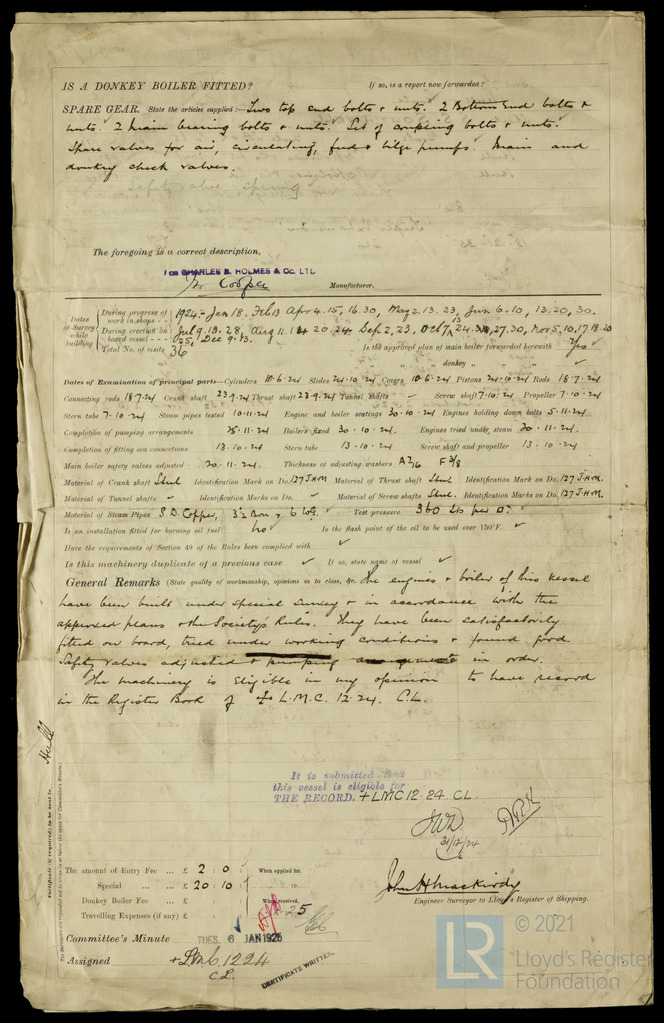 IS A DONKEY BOILER FITTED? If so, is a report now forwarded?
SPARE GEAR. State the articles supplied:— Two top end bolts & nuts. 2 Bottom End bolts &
nuts. 2 main bearing bolts & nuts. Set of coupling bolts & nuts.
Spare valves for air, circulating, feed & bilge pumps. Main and
donkey check valves.
Safety valve spring
The foregoing is a correct description,
For CHARLES D. HOLMES & Co. LTD.
Cooper Manufacturer.
Dates of Survey while building
During progress of work in shops - - 1924:- Jan 18. Feb 13 Apr 4. 15, 16. 30, May 2. 13. 23, Jun 6. 10, 13. 20, 30.
During erection on board vessel - - - Jul 9. 13. 28, Aug 11. 20. 24 Sep. 2, 23, Oct 7, 13 24. 27. 30, Nov 5, 10, 17. 18. 20
25, Dec 9. 13.
Total No. of visits 36 Is the approved plan of main boiler forwarded herewith Yes
" " " donkey " " " ✓
Dates of Examination of principal parts—Cylinders 10.6.24 Slides 24.10.24 Covers 10.6.24 Pistons 24.10.24 Rods 18.7.24
Connecting rods 18.7.24 Crank shaft 23.9.24 Thrust shaft 23.9.24 Tunnel shafts ✓ Screw shaft 7.10.24 Propeller 7.10.24
Stern tube 7.10.24 Steam pipes tested 10.11.24 Engine and boiler seatings 30.10.24 Engines holding down bolts 5.11.24
Completion of pumping arrangements 25.11.24 Boilers fixed 30.10.24 Engines tried under steam 20.11.24
Completion of fitting sea connections 13.10.24 Stern tube 13.10.24 Screw shaft and propeller 13.10.24
Main boiler safety valves adjusted 20.11.24 Thickness of adjusting washers A 7/16 F 3/8
Material of Crank shaft Steel Identification Mark on Do. 127 J.H.M. Material of Thrust shaft Steel Identification Mark on Do. 127 J.H.M.
Material of Tunnel shafts ✓ Identification Marks on Do. ✓ Material of Screw shafts Steel. Identification Marks on Do. 127 J.H.M.
Material of Steam Pipes S.D. Copper, 3½ bore × 6 W.G. Test pressure 360 lbs per □"
Is an installation fitted for burning oil fuel No Is the flash point of the oil to be used over 150°F. ✓
Have the requirements of Section 49 of the Rules been complied with ✓
Is this machinery duplicate of a previous case ✓ If so, state name of vessel ✓
General Remarks (State quality of workmanship, opinions as to class, &c. The engines & boiler of this vessel
have been built under special survey & in accordance with the
approved plans & the Society's Rules. They have been satisfactorily
fitted on board, tried under working conditions & found good
Safety valves adjusted & pumping arrangements in order.
The machinery is Eligible in my opinion to have record
in the Register Book of + L.M.C. 12.24. C.L.
Hull
Certificate (if required) to be sent to
It is submitted that
this vessel is eligible for
THE RECORD. + LMC 12.24 CL
31/12/24
The amount of Entry Fee ... £ 2 : 0 : When applied for,
Special ... ... £ 20 : 10 :
Donkey Boiler Fee ... £ : : When received,
Travelling Expenses (if any) £ : : 25
John H Mackirdy
Engineer Surveyor to Lloyd's Register of Shipping.
Committee's Minute TUES. 6 JAN 1925
Assigned + LMC 12.24
C.L.
CERTIFICATE WRITTEN.
LR
© 2021
Lloyd's Register
Foundation